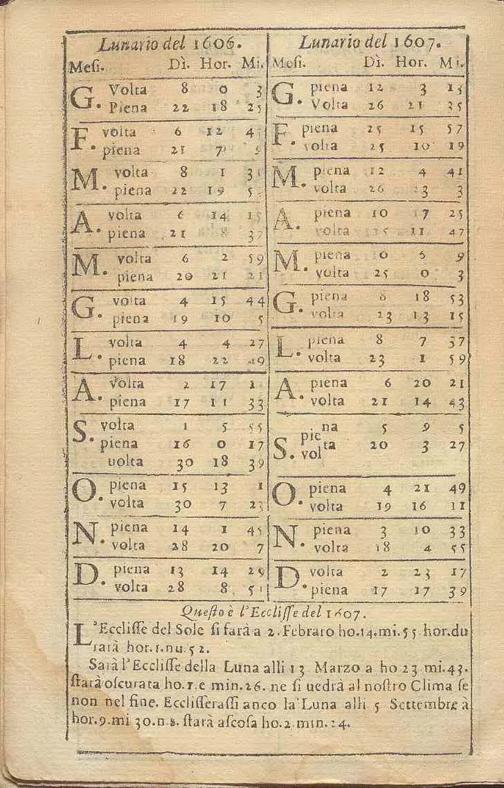 Lunario del 1606.
Mesi. Dì. Hor. Mi.
G. Volta 8 0 3
Piena 22 18 25
F. volta 6 12
piena 21 7
M. volta 8 1
piena 22 19
A. volta 6 14
piena 21 8
M. volta 6 2 59
piena 20 21 21
G. volta 4 15 44
piena 19 10 5
L. volta 4 4 27
piena 18 22 49
A. Volta 2 17
piena 17 11 33
S. volta 1 5 55
piena 16 0 17
uolta 30 18 39
O. piena 15 13 1
volta 30 7
N. piena 14 1 45
volta 28 20 7
D. piena 13 14 29
volta 28 8
Lunario del 1607.
Mesi. Dì. Hor. Mi.
G. piena 12 3
Volta 26 21 35
F. piena 25 15 57
volta 25 10 19
M. piena 12 4 41
volta 26 23 3
A. piena 10 17 25
volta 11 47
M. piena 6 9
volta 25 0 3
G. piena 8 18 53
volta 23 13 15
L. piena 8 7 37
volta 23 1 59
A. piena 6 20 21
volta 21 14 43
S. piena 5 9 5
volta 20 3 27
O. piena 4 21 49
volta 19 16 11
N. piena 3 10 33
volta 18 4 55
D. volta 2 23 17
piena 17 17 39
Questo è l'Ecclisse del 1607.
L'Ecclisse del Sole si farà a 2. Febraro ho.14.mi.55 hor.du
rarà hor.1.nu.52.
Sarà l'Ecclisse della Luna alli 13 Marzo a ho 23 mi.43.
starà oscurata ho.1.e min.26. ne si uedrà al nostro Clima se
non nel fine. Ecclisserassi anco la Luna alli 5 Settembre à
hor.9.mi 30.n.8. starà ascosa ho.2.min.14.